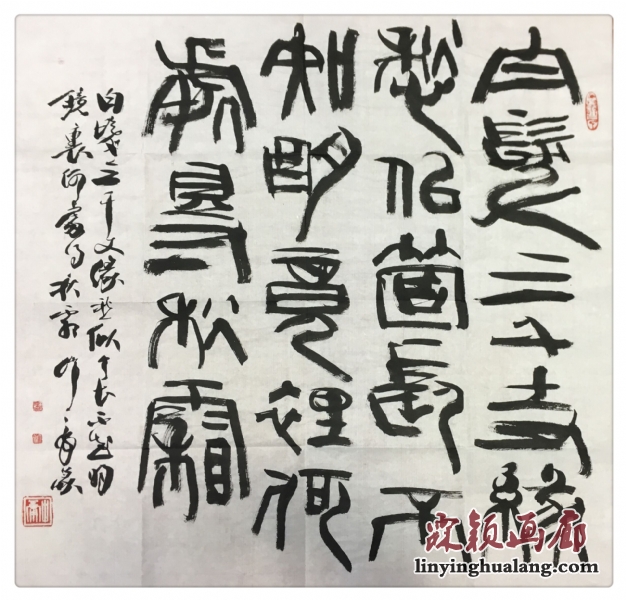 白髮三千丈緣
愁似箇長不
知明竟裡何
處得秋霜
白髮三千丈緣愁似个長不知明
鏡裏何處得秋霜
画廊
linyinghualang.com